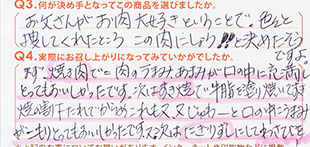 Q3.何が決め手となってこの商品を選びましたか。
お父さんがお肉大好きということで。色んと
捜してくれたところ この肉にしょう!!と決めたそう
ですよ。
Q4.実際にお召し上がりになってみていかがでしたか。
まず、焼き肉でと 肉のうまみあまみが口の中に充満し
とってもおいしかったです。次はすき焼で牛脂を塗り焼いてすき
焼の割下たれでからめこれも又、又じゅわーと口の中にうまみ
がこもりとってもおいしかったです又次は にぎりずしにしてわさびを